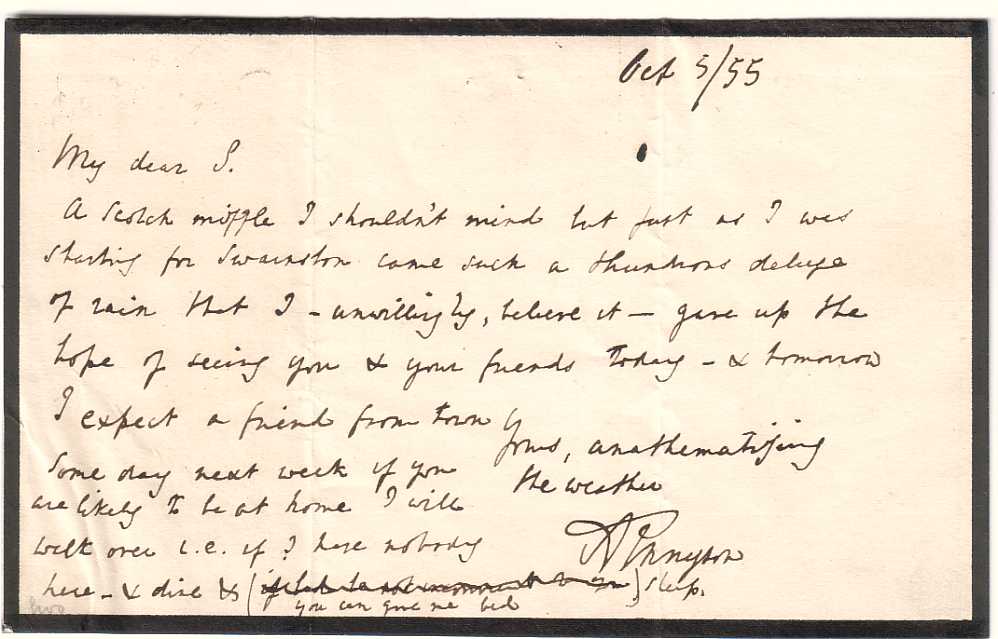 Oct 5/55
My dear S.
A Scotch miffle I shouldn't mind but just as I was
starting for Swainston came such a thundrous deluge
of rain that I – unwillingly, believe it – gave up the
hope of seeing you & your friends today – & tomorrow
I expect a friend from town
Yours, anathematizing
the weather
ATennyson
Some day next week if you
are likely to be at home I will
walk over i.e. if I have nobody
here – & dine & ( ) sleep.
you can give me bed